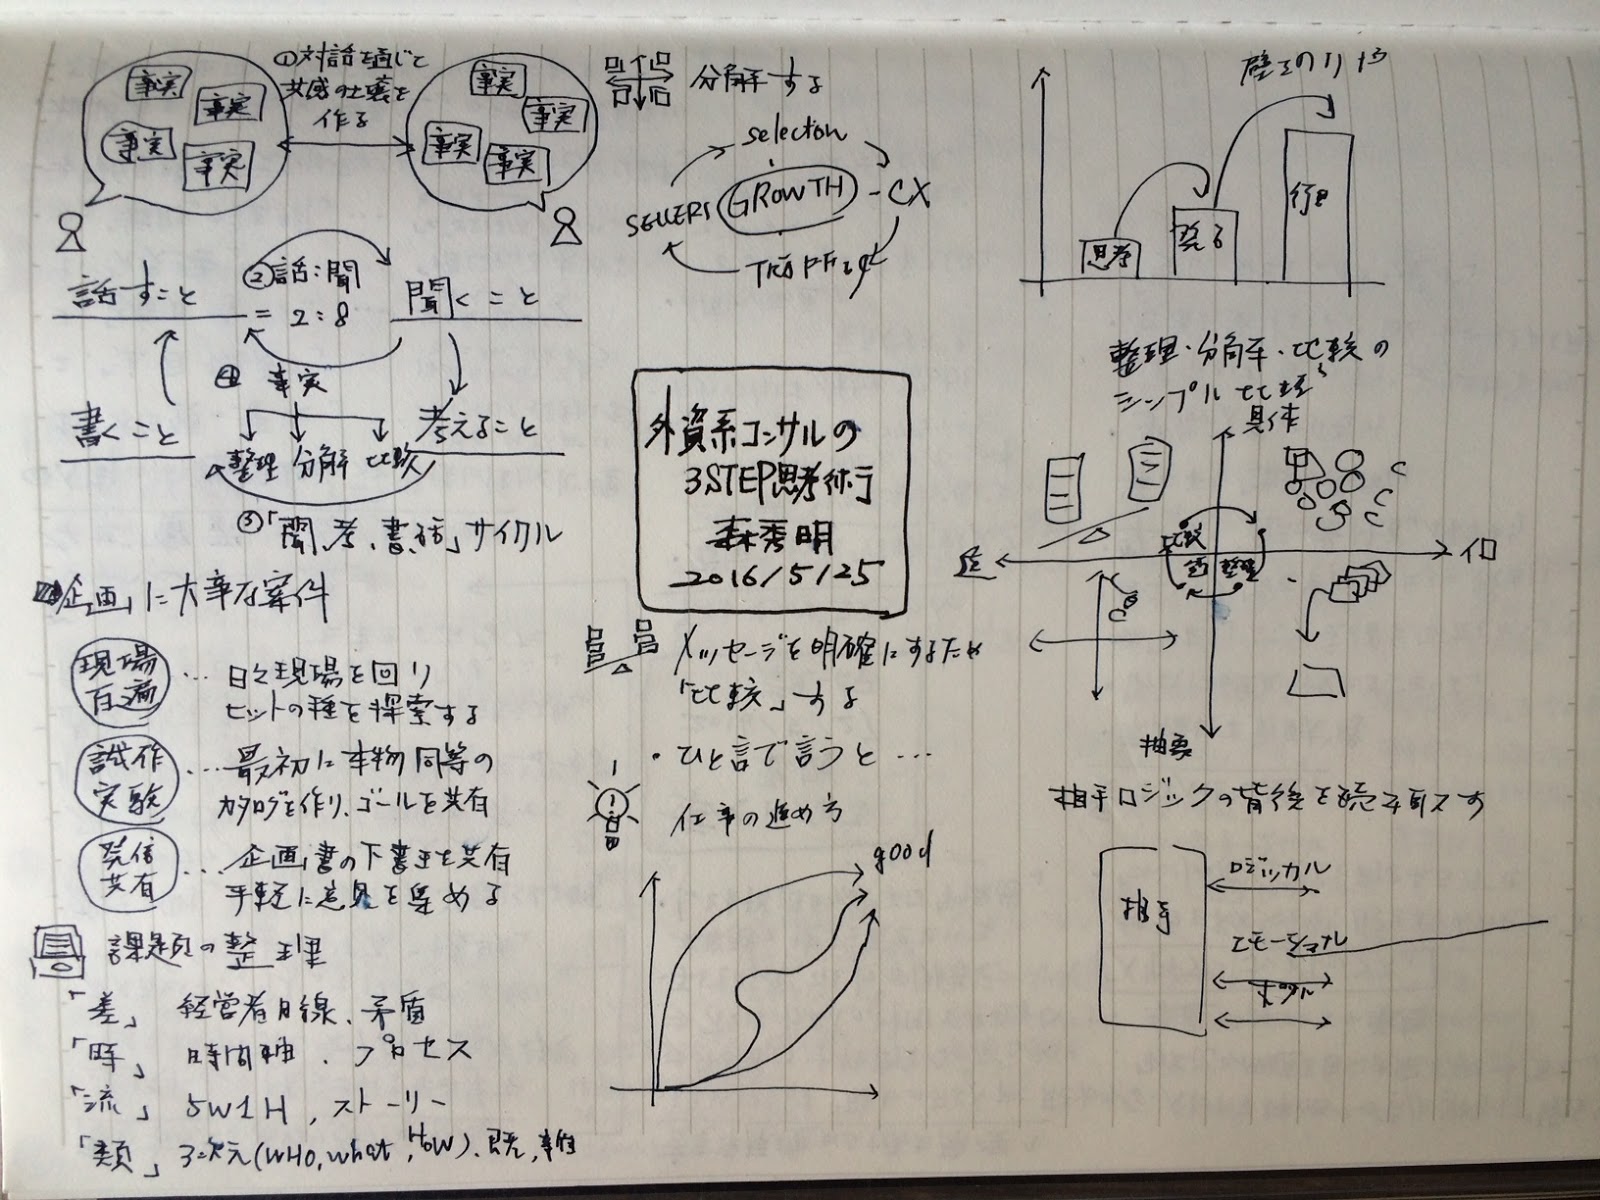 事実
事実
事実
事実
①対話を通じて
共感の土壌を
作る
事実
事実
事実
事実
話すこと
②話:聞
= 2:8
聞くこと
④ 事実
書くこと
整理 分解 比較
考えること
③「聞、考、書、話」サイクル
企画に大事な案件
現場
百遍
… 日々現場を回り
ヒットの種を探索する
試作
実験
… 最初に本物同等の
カタログを作り、ゴールを共有
発信
共有
… 企画書の下書きを共有
手軽に意見を集める
課題の整理
「差」 経営者目線、矛盾
「時」 時間軸、プロセス
「流」 5W1H、ストーリー
「類」 3次元(WHO, what, HOW)、
分解する
selection
SELLERS
GROWTH
CX
外資系コンサルの
3STEP思考術
森秀明
2016/5/25
メッセージを明確にするため
「比較」する
・ひと言で言うと…
仕事の進め方
good
思考
行動
整理・分解・比較の
シンプル
具体
比較
整理
抽象
相手ロジックの背後を読み取る
相手
ロジカル
エモーショナル